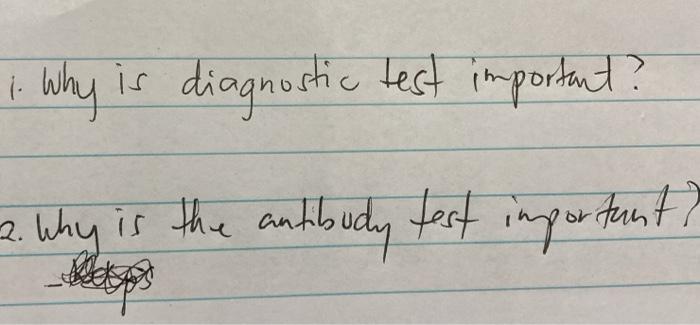 1. Why is diagnostic test important?
2. Why is the antibody test important?